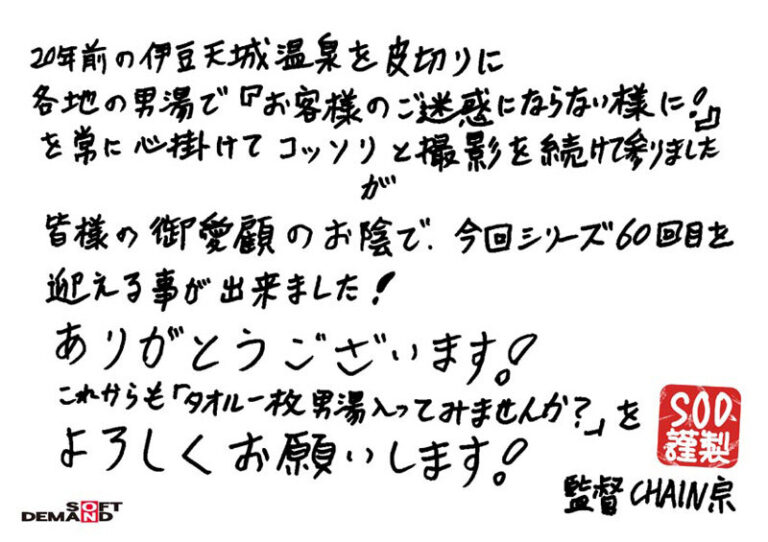 20年前の伊豆天城温泉を皮切りに
各地の男湯で『お客様のご迷惑にならない様に!』
を常に心掛けてコッソリと撮影を続けて参りました
が
皆様の御愛顧のお陰で、今回シリーズ60回目を
迎える事が出来ました!
ありがとうございます!
これからも「タオル一枚男湯入ってみませんか?」を
よろしくお願いします!
S.O.D.
謹製
監督CHAIN宗
SOFT
DEMAND
ON